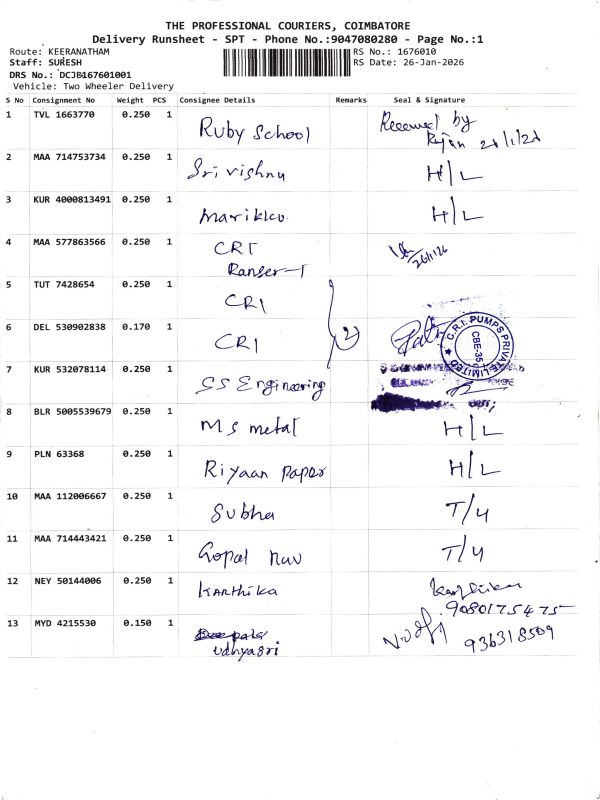 THE PROFESSIONAL COURIERS, COIMBATORE
Delivery Runsheet - SPT - Phone No.:9047080280 - Page No.:1
Route: KEERANATHAM
Staff: SURESH
DRS No.: DCJB167601001
Vehicle: Two Wheeler Delivery
RS No.: 1676010
RS Date: 26-Jan-2026
S No Consignment No Weight PCS Consignee Details Remarks Seal & Signature
1 TVL 1663770 0.250 1 Ruby School Received by
2 MAA 714753734 0.250 1 Sri vishnu H/L
3 KUR 4000813491 0.250 1 H/L
4 MAA 577863566 0.250 1 CRT 26/1/26
5 TUT 7428654 0.250 1 CRI
6 DEL 530902838 0.170 1 CRI 2
C.R.I. PUMPS PRIVATE LIMITED
CBE-35
7 KUR 532078114 0.250 1 SS Engineering
8 BLR 5005539679 0.250 1 MS metal H/L
9 PLN 63368 0.250 1 Riyaan Paper H/L
10 MAA 112006667 0.250 1 Subha T/4
11 MAA 714443421 0.250 1 Gopal T/4
12 NEY 50144006 0.250 1 KARTHIKA
9080175475
13 MYD 4215530 0.150 1
Udhyasri 936318509